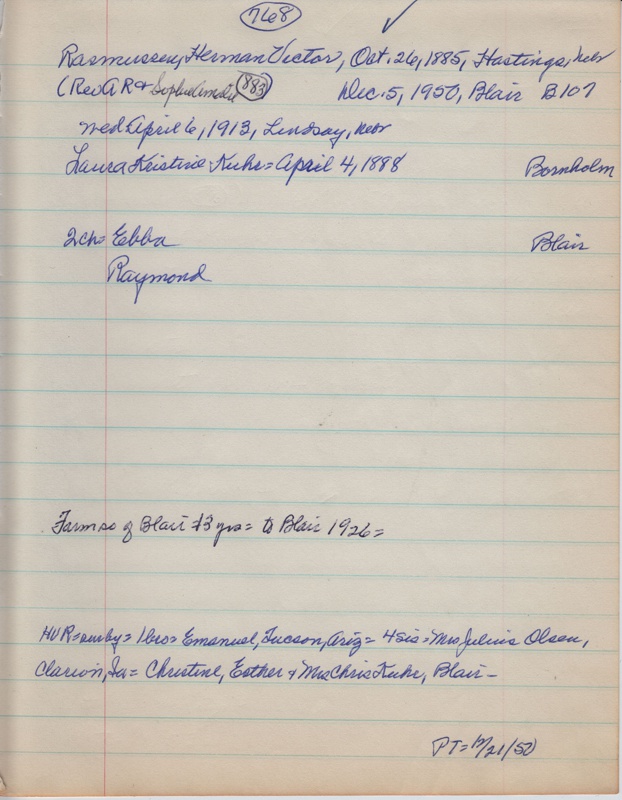 768
Rasmussen, Herman Victor, Oct. 26, 1885, Hastings, Nebr
(Rev A R + Sophie Amelia 883 Dec. 5, 1950, Blair B107
wed April 6, 1913, Lindsay, Nebr
Laura Kristine Kuhr = April 4, 1888 Bornholm
2ch= Ebba Blair
Raymond
Farm so of Blair 13 yrs = to Blair 1926 =
HVR = survby = 1 bro = Emanuel, Tucson, Ariz = 4 sis = Mrs Julius Olsen,
Clarion, Ia = Christine, Esther + Mrs Chris Kuhr, Blair -
PT = 12/21/50